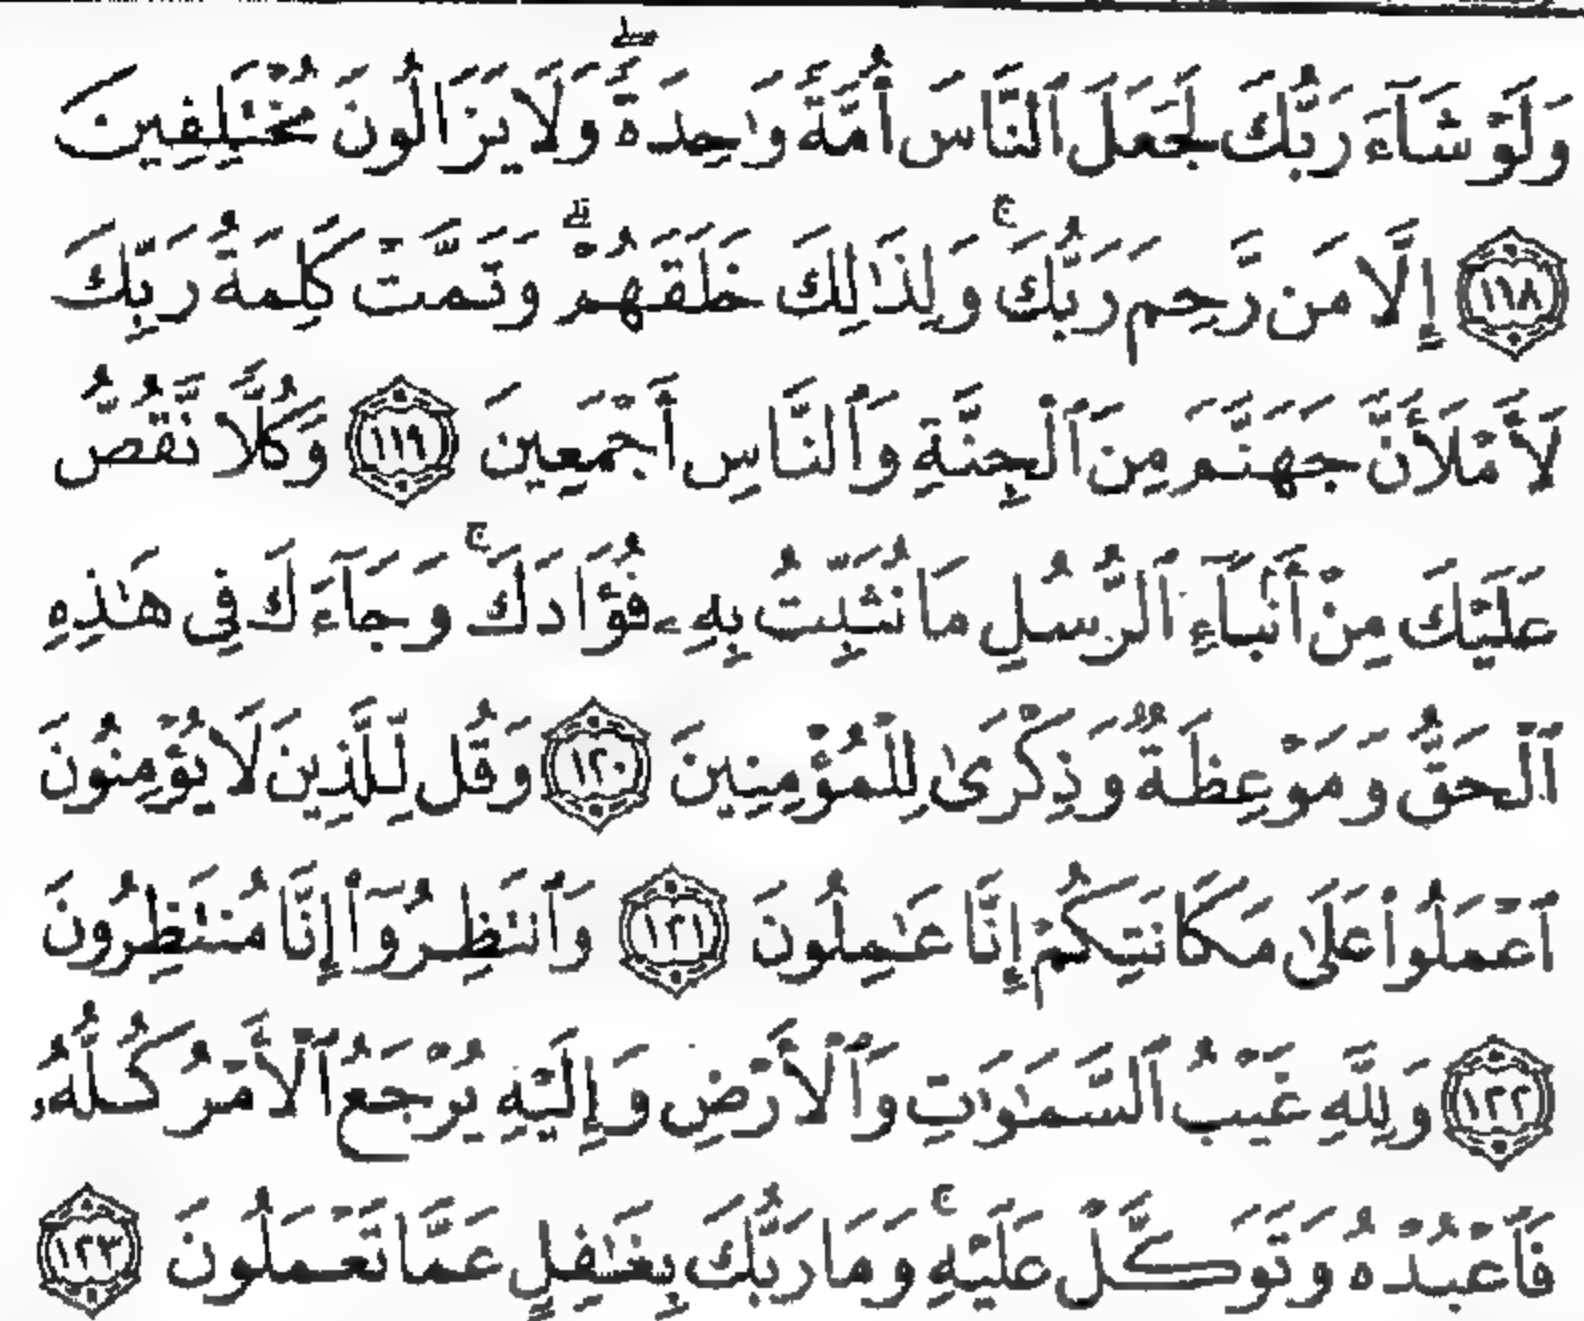 وَلَوْ شَآءَ رَبُّكَ لَجَعَلَ ٱلنَّاسَ أُمَّةً وَٰحِدَةً ۖ وَلَا يَزَالُونَ مُخْتَلِفِينَ
﴿١١٨﴾ إِلَّا مَن رَّحِمَ رَبُّكَ ۚ وَلِذَٰلِكَ خَلَقَهُمْ ۗ وَتَمَّتْ كَلِمَةُ رَبِّكَ
لَأَمْلَأَنَّ جَهَنَّمَ مِنَ ٱلْجِنَّةِ وَٱلنَّاسِ أَجْمَعِينَ ﴿١١٩﴾ وَكُلًّا نَّقُصُّ
عَلَيْكَ مِنْ أَنۢبَآءِ ٱلرُّسُلِ مَا نُثَبِّتُ بِهِۦ فُؤَادَكَ ۚ وَجَآءَكَ فِى هَٰذِهِ
ٱلْحَقُّ وَمَوْعِظَةٌ وَذِكْرَىٰ لِلْمُؤْمِنِينَ ﴿١٢٠﴾ وَقُل لِّلَّذِينَ لَا يُؤْمِنُونَ
ٱعْمَلُوا۟ عَلَىٰ مَكَانَتِكُمْ إِنَّا عَٰمِلُونَ ﴿١٢١﴾ وَٱنتَظِرُوٓا۟ إِنَّا مُنتَظِرُونَ
﴿١٢٢﴾ وَلِلَّهِ غَيْبُ ٱلسَّمَٰوَٰتِ وَٱلْأَرْضِ وَإِلَيْهِ يُرْجَعُ ٱلْأَمْرُ كُلُّهُۥ
فَٱعْبُدْهُ وَتَوَكَّلْ عَلَيْهِ ۚ وَمَا رَبُّكَ بِغَٰفِلٍ عَمَّا تَعْمَلُونَ ﴿١٢٣﴾